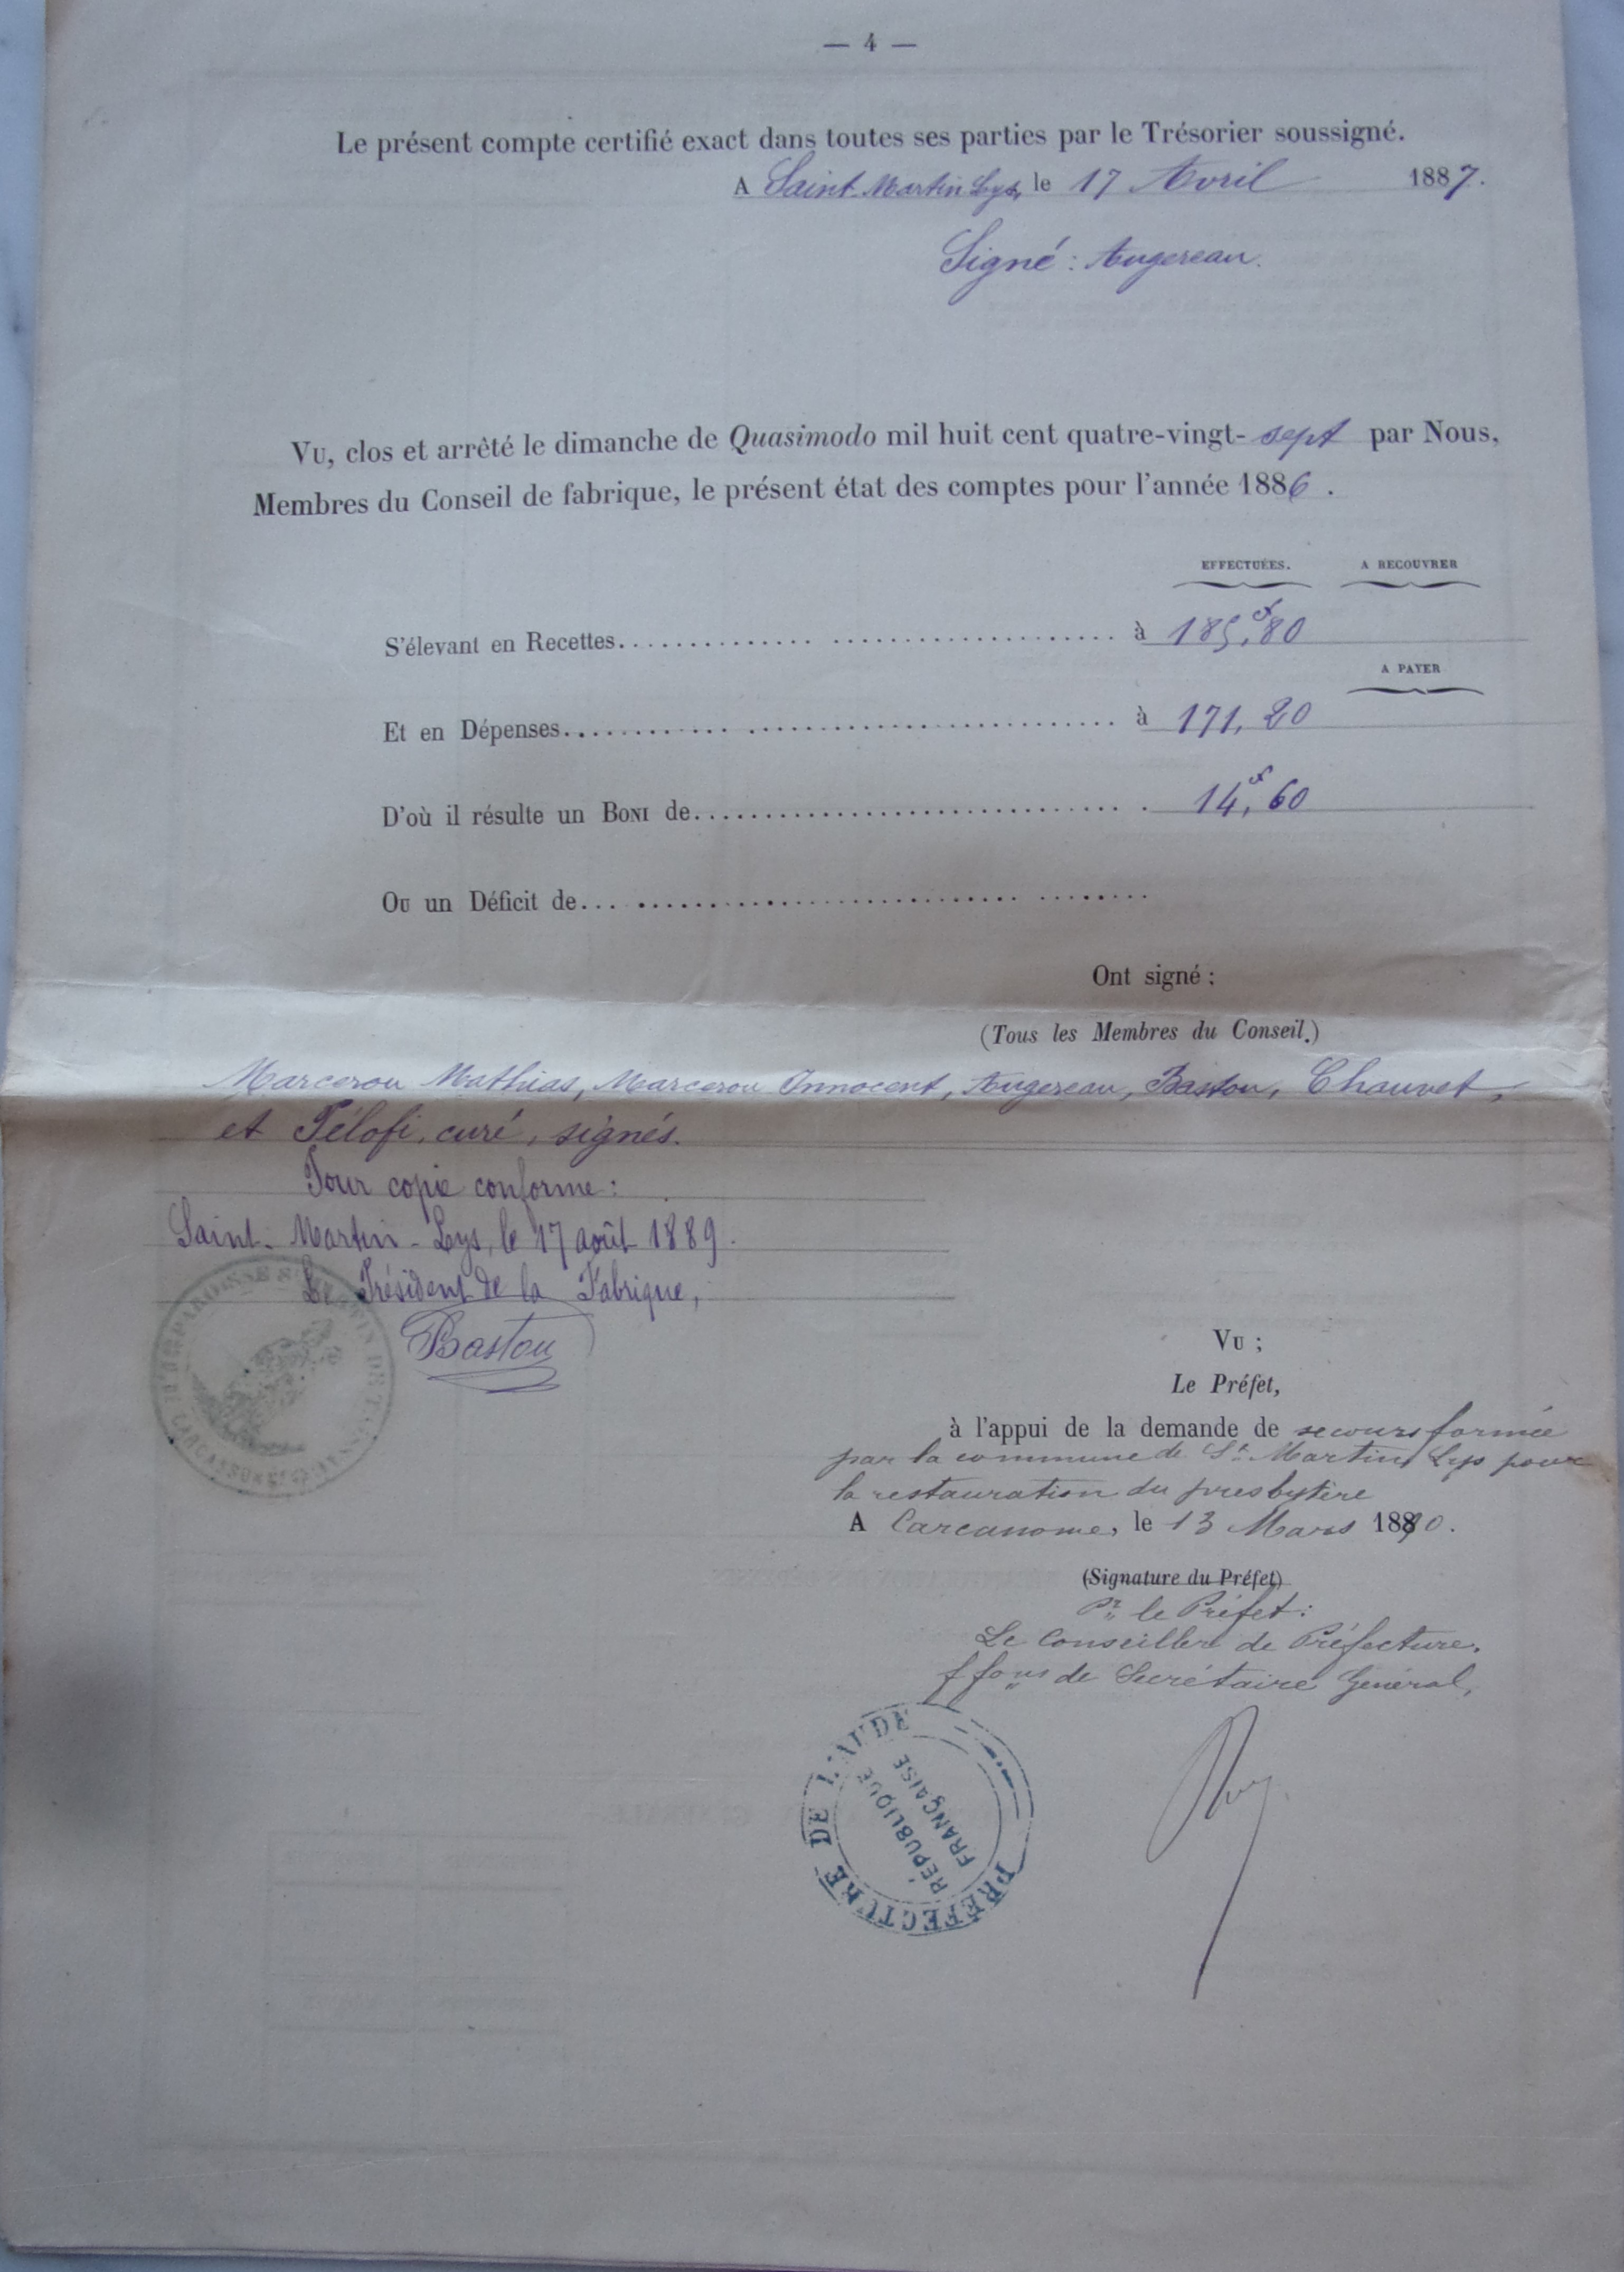 — 4 —
Le présent compte certifié exact dans toutes ses parties par le Trésorier soussigné.
A Saint-Martin-Lys, le 17 Avril 1887.
Signé : Augereau.
Vu, clos et arrêté le dimanche de Quasimodo mil huit cent quatre-vingt-sept par Nous,
Membres du Conseil de fabrique, le présent état des comptes pour l'année 1886.
EFFECTUÉES. A RECOUVRER
S'élevant en Recettes.................................. à 185,f80
A PAYER
Et en Dépenses.................................. à 171,20
D'où il résulte un BONI de.................................. 14,f60
OU un Déficit de..................................
Ont signé :
(Tous les Membres du Conseil.)
Marcerou Mathias, Marcerou Innocent, Augereau, Baston, Chauvet,
et Pélofi, curé, signés.
Pour copie conforme :
Saint-Martin-Lys, le 17 août 1889.
Le Président de la Fabrique,
Baston
VU ;
Le Préfet,
à l'appui de la demande de secours formée
par la commune de St Martin Lys pour
la restauration du presbytère
A Carcassonne, le 13 Mars 1890.
(Signature du Préfet)
Pr le Préfet :
Le Conseiller de Préfecture.
f fons de Secrétaire Général,
PRÉFECTURE DE L'AUDE
RÉPUBLIQUE
FRANÇAISE